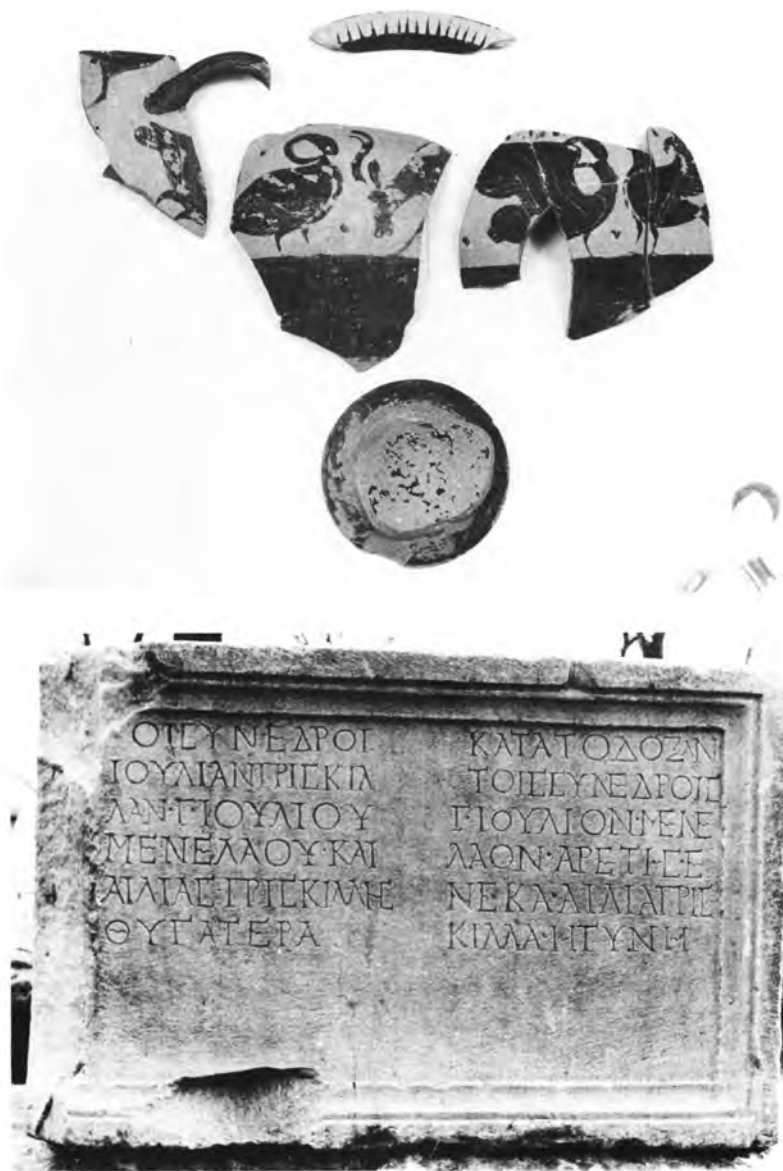 ΟΙΣΥΝΕΔΡΟΙ
ΙΟΥΛΙΑΝΠΡΙΣΚΙΛ
ΛΑΝ·Γ·ΙΟΥΛΙΟΥ
ΜΕΝΕΛΑΟΥ·ΚΑΙ
ΑΙΛΙΑΣ·ΠΡΙΣΚΙΛΛΗΣ
ΘΥΓΑΤΕΡΑ
ΚΑΤΑΤΟΔΟΞΑΝ
ΤΟΙΣΣΥΝΕΔΡΟΙΣ
Γ·ΙΟΥΛΙΟΝ·ΜΕΝΕ
ΛΑΟΝ·ΑΡΕΤΗΣ·Ε
ΝΕΚΑ·ΑΙΛΙΑΠΡΙΣ
ΚΙΛΛΑ·Η·ΓΥΝΗ